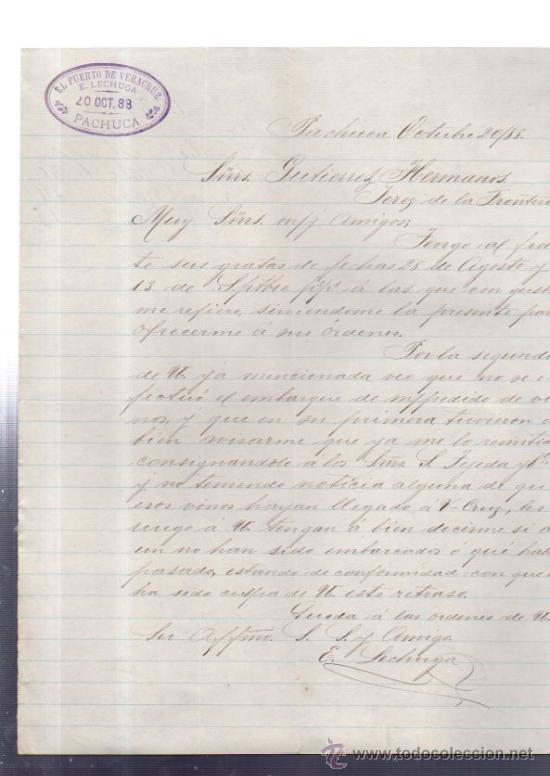 EL PUERTO DE VERACRUZ
E. LECHUGA
20 OCT. 88
PACHUCA
Pachuca Octubre 20/88.
Sñrs. Gutierrez Hermanos.
Jerez de la Frontera
Muy Sñrs. míos y Amigos;
Tengo al fren
te sus gratas de fechas 28 de Agosto y
13 de Septbre á las que con gusto
me refiero, sirviendome la presente para
ofrecerme á sus órdenes.
Por la segunda
de U. ya mencionada veo que no se e
fectuó el embarque de mi pedido de vi
nos, y que en su primera tuvieron á
bien avisarme que ya me lo remitia
consignandole á los Sñrs. S. Tejeda y Ca
y no teniendo noticia alguna de que
esos vinos hayan llegado á V-Cruz, les
ruego á U. tengan á bien decirme si a
un no han sido embarcados o qué hab
pasado, estando de conformidad con que
ha sido culpa de U. este retraso.
Queda á las ordenes de U.
Su Affmo. S. S. y Amigo.
E. Lechuga
todocoleccion.net